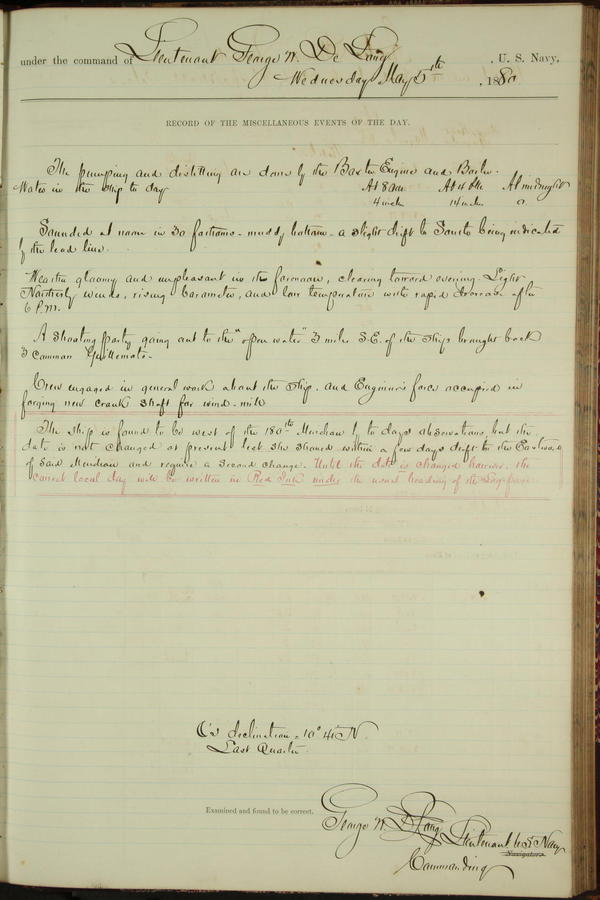 under the command of Lieutenant George W. De Long, U. S. Navy,
Wednesday May 5th, 1880
RECORD OF THE MISCELLANEOUS EVENTS OF THE DAY.
The pumping and distilling are done by the Baxter Engine and Boiler.
Water in the ship to day At 8 am At 4 PM At midnight
4 inches 14 inches 0
Sounded at noon in 30 fathoms - muddy bottom - a slight drift to South being indicated
by the lead line.
Weather gloomy and unpleasant in the forenoon, clearing toward evening. Light
Northerly winds, rising barometer, and low temperature with rapid decrease after
6 P.M.
A shooting party going out to the "open water" 3 miles S.E. of the ship brought back
3 common Guillemots.
Crew engaged in general work about the ship. and Engineer's force occupied in
forging new crank shaft for wind-mill
The ship is found to be west of the 180th Meridian by to days observations, but the
date is not changed at present lest she should within a few days drift to the Eastward
of said Meridian and require a second change. Until the date is changed however, the
correct local day will be written in Red Ink under the usual heading of the Log page.
☾'s declination = 10° 41' N
Last Quarter.
Examined and found to be correct.
George W. De Long Lieutenant U.S. Navy
Navigator.
Commanding